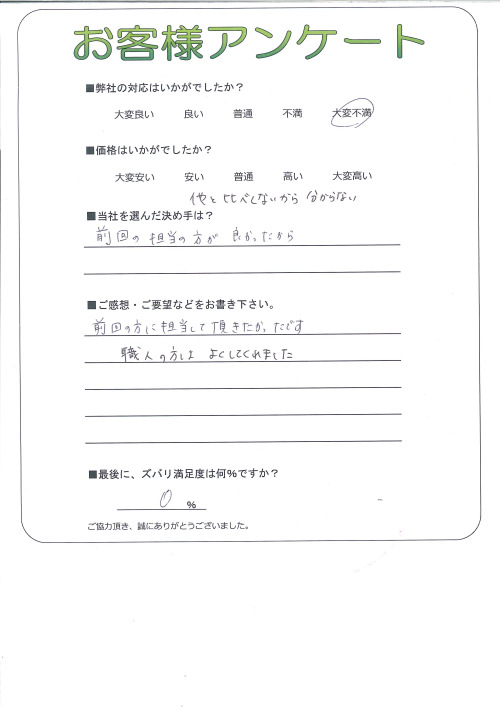 お客様アンケート
■弊社の対応はいかがでしたか？
大変良い 良い 普通 不満 大変不満
■価格はいかがでしたか？
大変安い 安い 普通 高い 大変高い
他と比べしないから 分からない
■当社を選んだ決め手は？
前回の担当の方が 良かったから
■ご感想・ご要望などをお書き下さい。
前回の方に担当して頂きたかったです
職人の方は よくしてくれました
■最後に、ズバリ満足度は何％ですか？
0 ％
ご協力頂き、誠にありがとうございました。